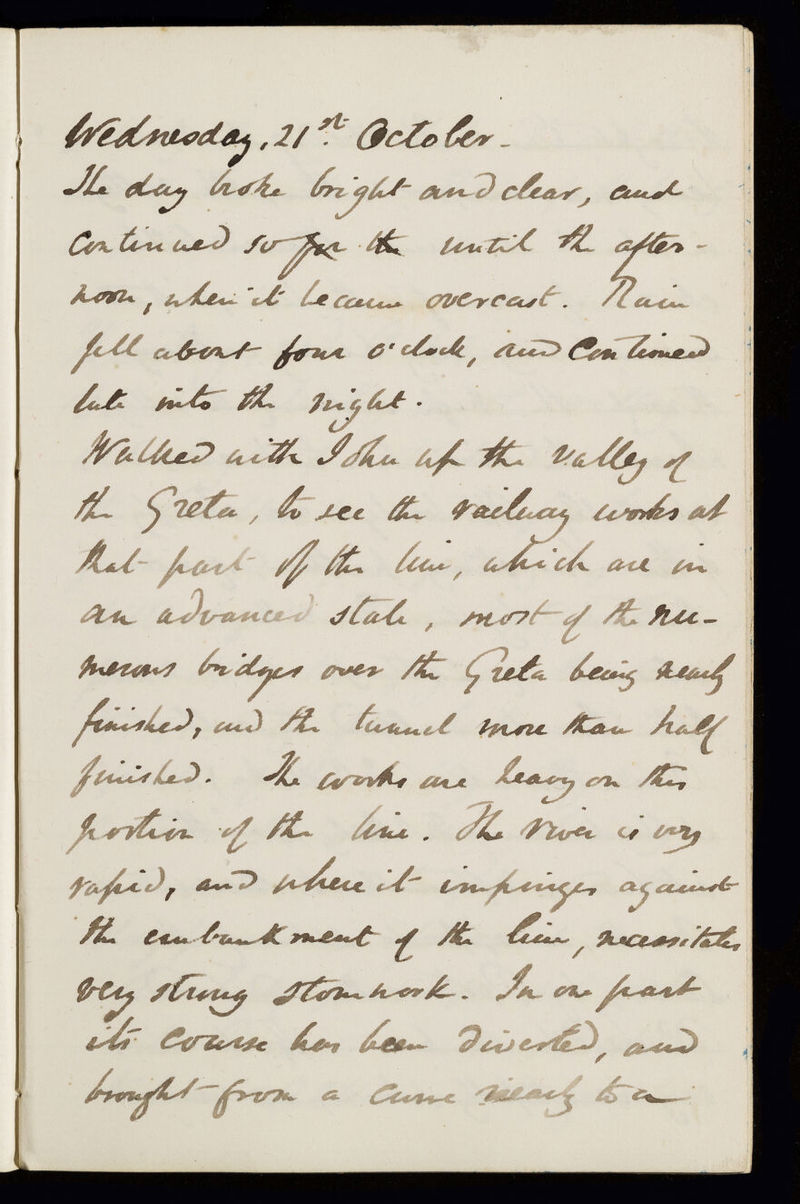 Wednesday, 21st. October -
The day broke bright and clear, and
continued so for the until the after-
noon, when it became overcast. Rain
fell about four o'clock, and continued
late into the night.
Walked with John up the valley of
the Greta, to see the railway works at
that part of the line, which are in
an advanced state, most of the nu-
merous bridges over the Greta being nearly
finished, and the tunnel more than half
finished. The works are heavy on this
portion of the line. The river is very
rapid, and where it impinges against
the embankment of the line, necessitates
very strong stonework. In one part
its course has been diverted, and
brought from a curve nearly to a